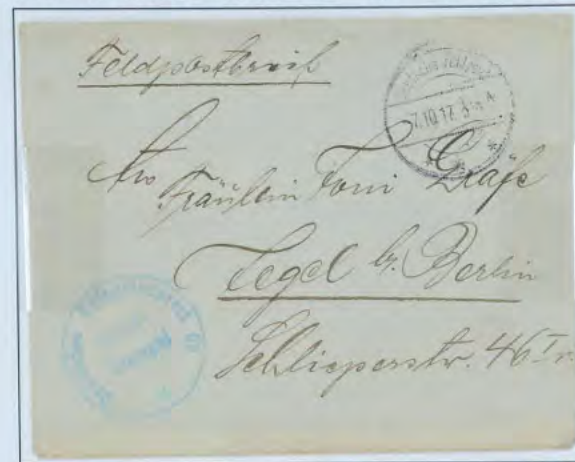 Feldpostbrief
7.10.17.
An
Fräulein Toni
Tegel b. Berlin
Schlieperstr. 46 I r.